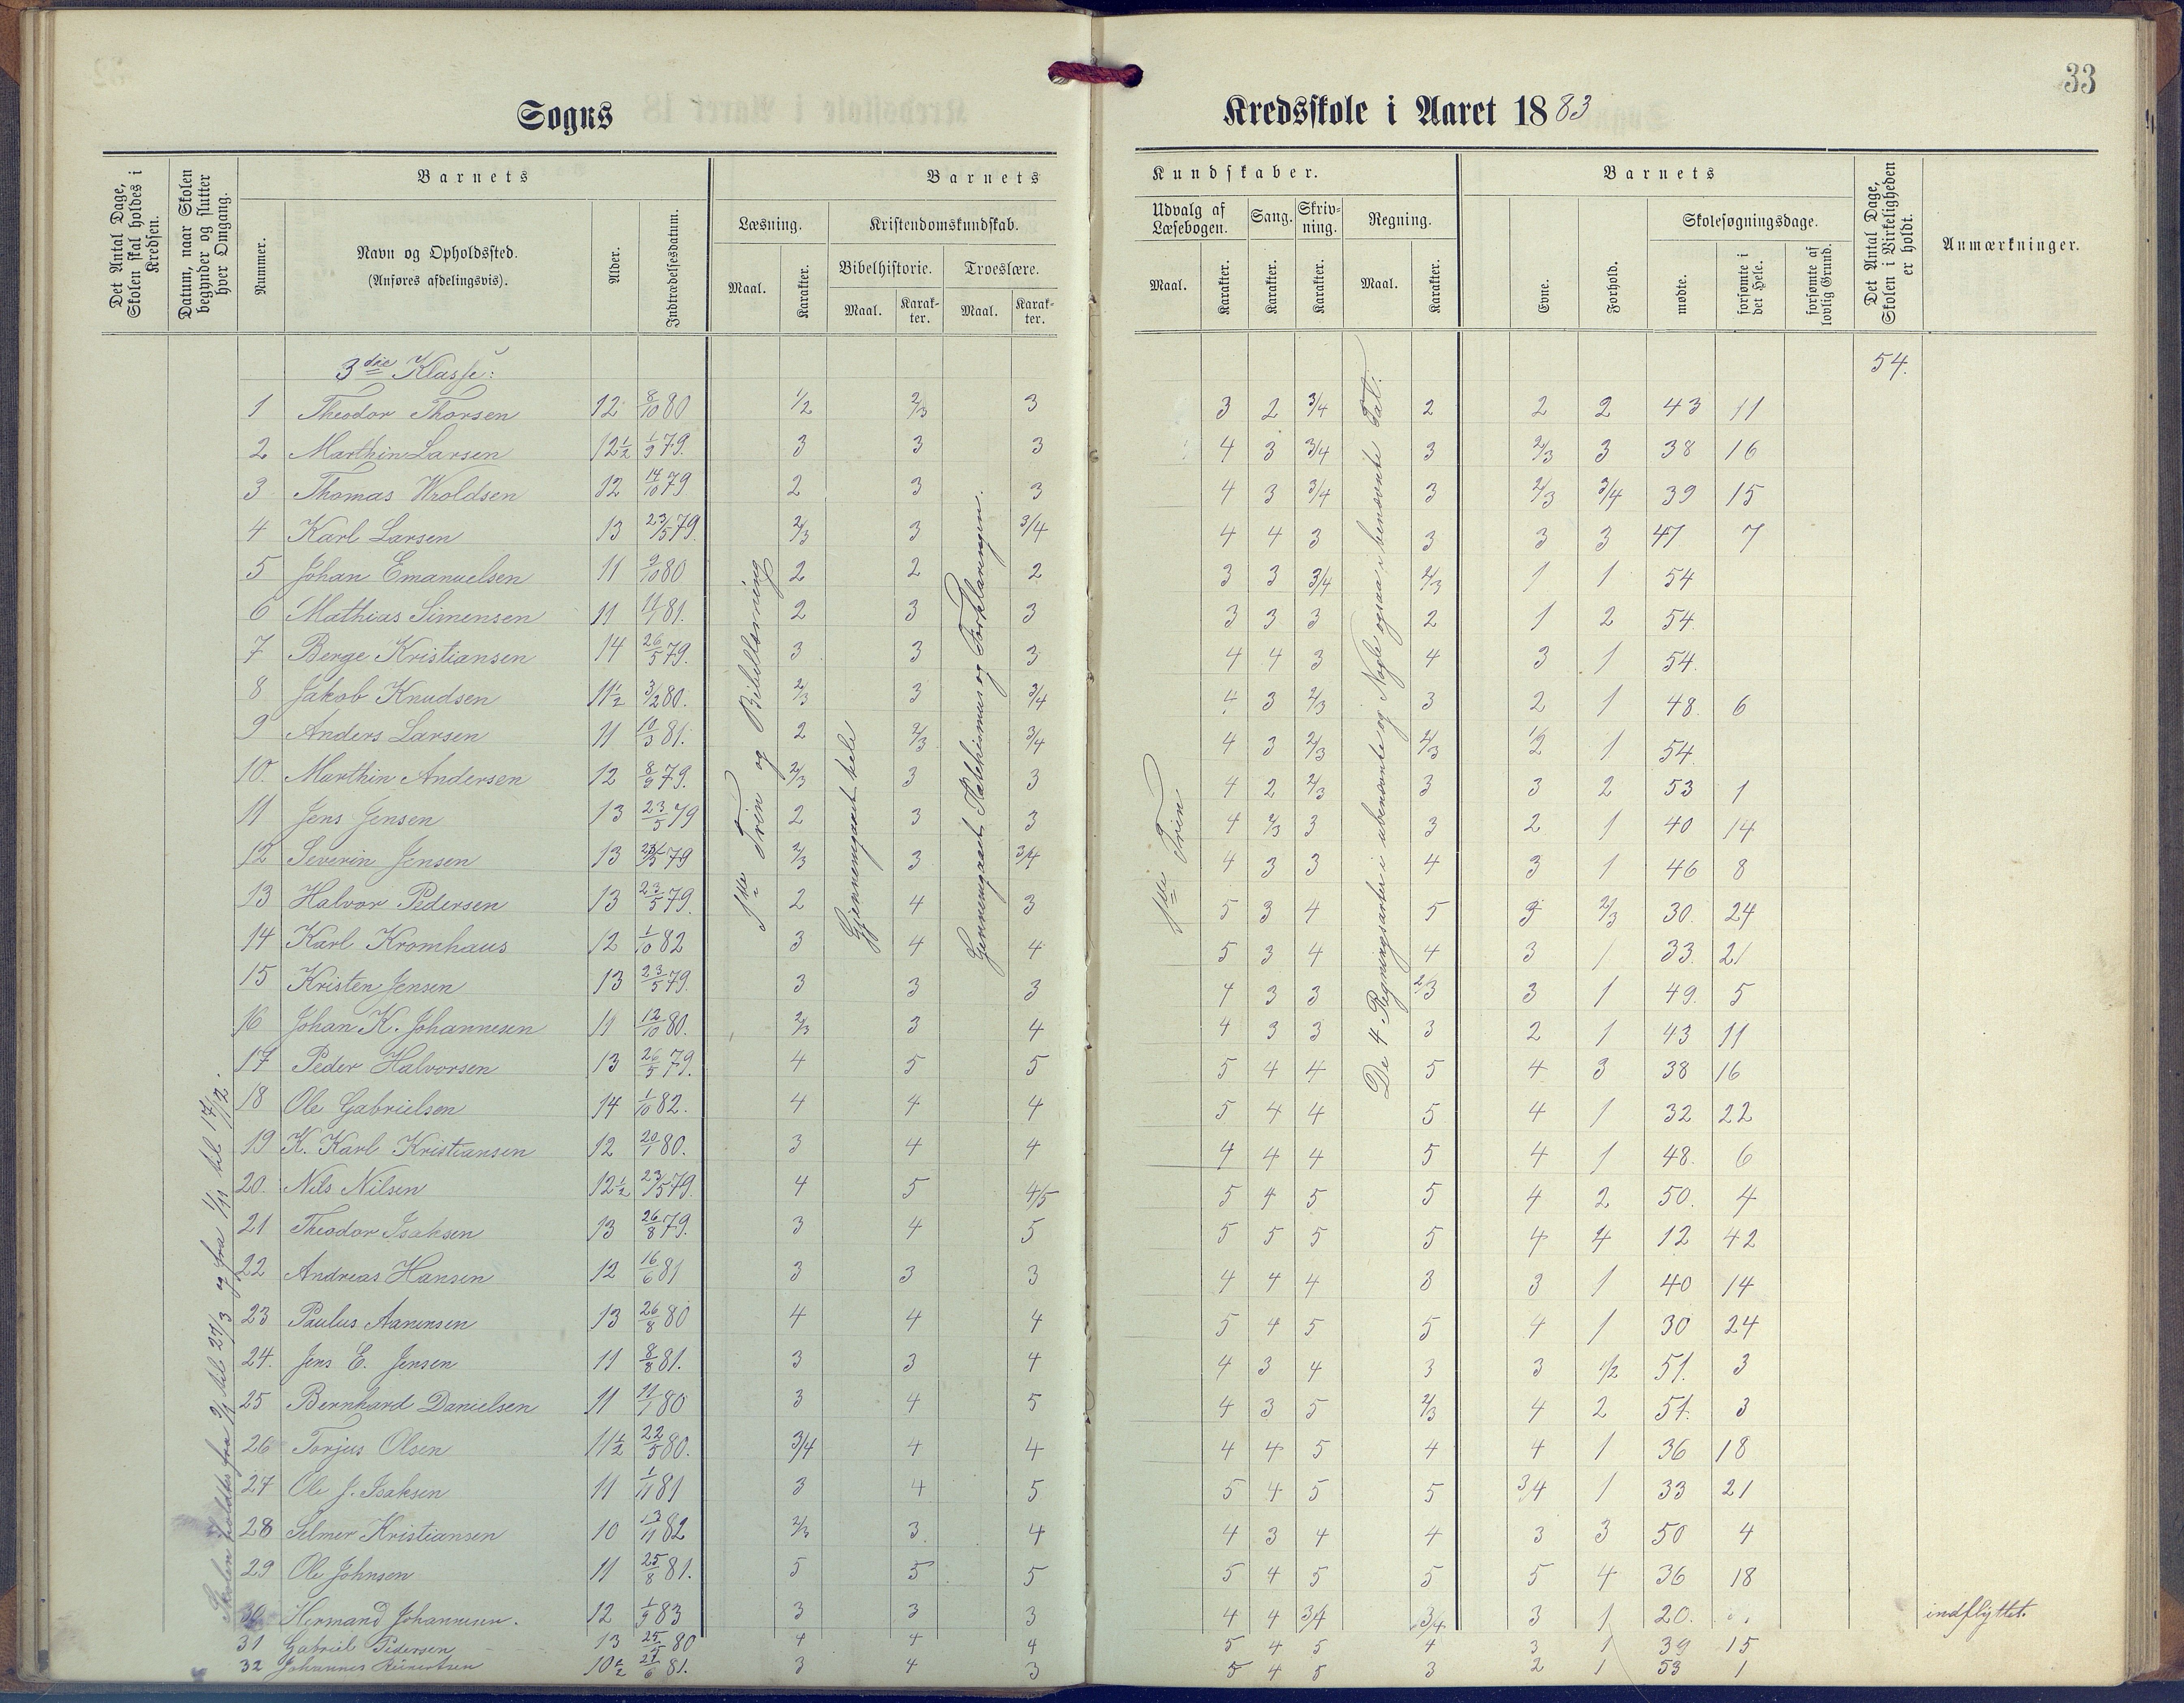 33
Sogns
Kredsskole i Aaret 1883
Det Antal Dage, Skolen skal holdes i Kredsen.
Datum, naar Skolen begynder og slutter hver Omgang.
Barnets
Nummer.
Navn og Opholdssted.
(Anføres afdelingsvis).
Alder.
Indtrædelsesdatum.
Barnets
Læsning.
Maal.
Karakter.
Kristendomskundskab.
Bibelhistorie.
Maal.
Karakter.
Troeslære.
Maal.
Karakter.
Kundskaber.
Udvalg af Læsebogen.
Maal.
Karakter.
Sang.
Karakter.
Skrivning.
Karakter.
Regning.
Maal.
Karakter.
Barnets
Evne.
Forhold.
Skolesøgningsdage.
mødte.
forsømte i det Hele.
forsømte af lovlig Grund.
Det Antal Dage, Skolen i Virkeligheden er holdt.
Anmærkninger.
3die Klasse: 54.
1 Theodor Thorsen 12 8/10 80 1/2 2/3 3 3 2 3/4 2 2 2 43 11
2 Marthin Larsen 12½ 1/9 79. 3 3 3 4 3 3/4 3 2/3 3 38 16
3 Thomas Wroldsen 12 14/10 79 2 3 3 4 3 3/4 3 2/3 3/4 39 15
4 Karl Larsen 13 23/5 79. 2/3 3 3/4 4 4 3 3 3 3 47 7
5 Johan Emanuelsen 11 9/10 80 2 2 2 3 3 3/4 2/3 1 1 54
6 Mathias Simensen 11 11/1 81. 2 3 3 3 3 3 2 1 2 54
7 Berge Kristiansen 14 26/5 79. 3 3 3 4 4 3 4 3 1 54.
8 Jakob Knudsen 11½ 3/2 80. 2/3 3 3/4 4 3 2/3 3 2 1 48. 6
9 Anders Larsen 11 10/3 81. 2 2/3 3/4 4 3 2/3 2/3 1/2 1 54.
10. Marthin Andersen 12 8/9 79. 2/3 3 3 4 2 2/3 3 3 2 53 1
11 Jens Jensen 13 23/5 79 2 3 3 4 2/3 3 3 2 1 40 14
12 Severin Jensen 13 23/5 79 2/3 3 3/4 4 3 3 4 3 1 46 8
13 Halvor Pedersen 13 23/5 79. 2 4 3 5 3 4 5 3 2/3 30. 24
14 Karl Kromhaus 12 1/10 82 3 4 4 5 3 4 4 3 1 33. 21
15 Kristen Jensen 13 23/5 79. 3 3 3 4 3 3 2/3 3 1 49. 5
16 Johan K. Johannesen 11 12/10 80. 2/3 3 4 4 3 3 3 2 1 43 11
17 Peder Halvorsen 13 26/5 79. 4 5 5 5 4 4 5 4 3 38 16
18 Ole Gabrielsen 14 1/10 82. 4 4 4 5 4 4 5 4 1 32 22
19 K. Karl Kristiansen 12 20/1 80. 3 4 4 4 4 4 5 4 1 48. 6
20. Nils Nilsen 12½ 23/5 79. 4 5 4/5 5 4 5 5 4 2 50. 4
21 Theodor Isaksen 13 26/8 79. 3 4 5 5 5 5 5 4 4 12 42
22 Andreas Hansen 12 16/6 81 3 3 3 4 4 4 3 3 1 40 14
23 Paulus Aanensen 13 26/8 80 4 4 4 5 4 5 5 4 1 30 24
24. Jens E. Jensen 11 8/8 81. 3 3 4 4 3 4 3 3 1/2 51. 3
25 Bernhard Danielsen 11 11/1 80 3 4 5 4 3 5 2/3 4 2 51. 3
26 Torjus Olsen 11½ 22/5 80. 3/4 4 4 4 4 5 4 4 1 36 18
27 Ole J. Isaksen 11 1/11 81 3 4 5 5 4 5 5 3/4 1 33 21
28 Selmer Kristiansen 10 13/11 82 2/3 3. 4 4 3 4 4 3 3 50 4
29 Ole Johnsen 11 25/8 81. 5 5 5 5 4 5 5 5 4 36 18
30 Hermand Johannesen. 12 1/9 83 3 3 3 4 4 3/4 3/4 3 1 20. indflyttet.
31 Gabriel Pedersen 13 80 4 4 4 5 4 5 4 3 1 39 15
32 Johannes Reinertsen 10½ 81. 3 4 3 5 4 5 3 2 1 53 1
Skolen holdtes fra til 27/3 og fra 1/11 til 17/12.
1ste Trin og Bibellæsning
Gjennemgaaet hele
Gjennemgaaet Katekismus og Forklaringen.
1ste Trin
De 4 Regningsarter i ubenævnte og Nogle ogsaa i benævnte Tal.